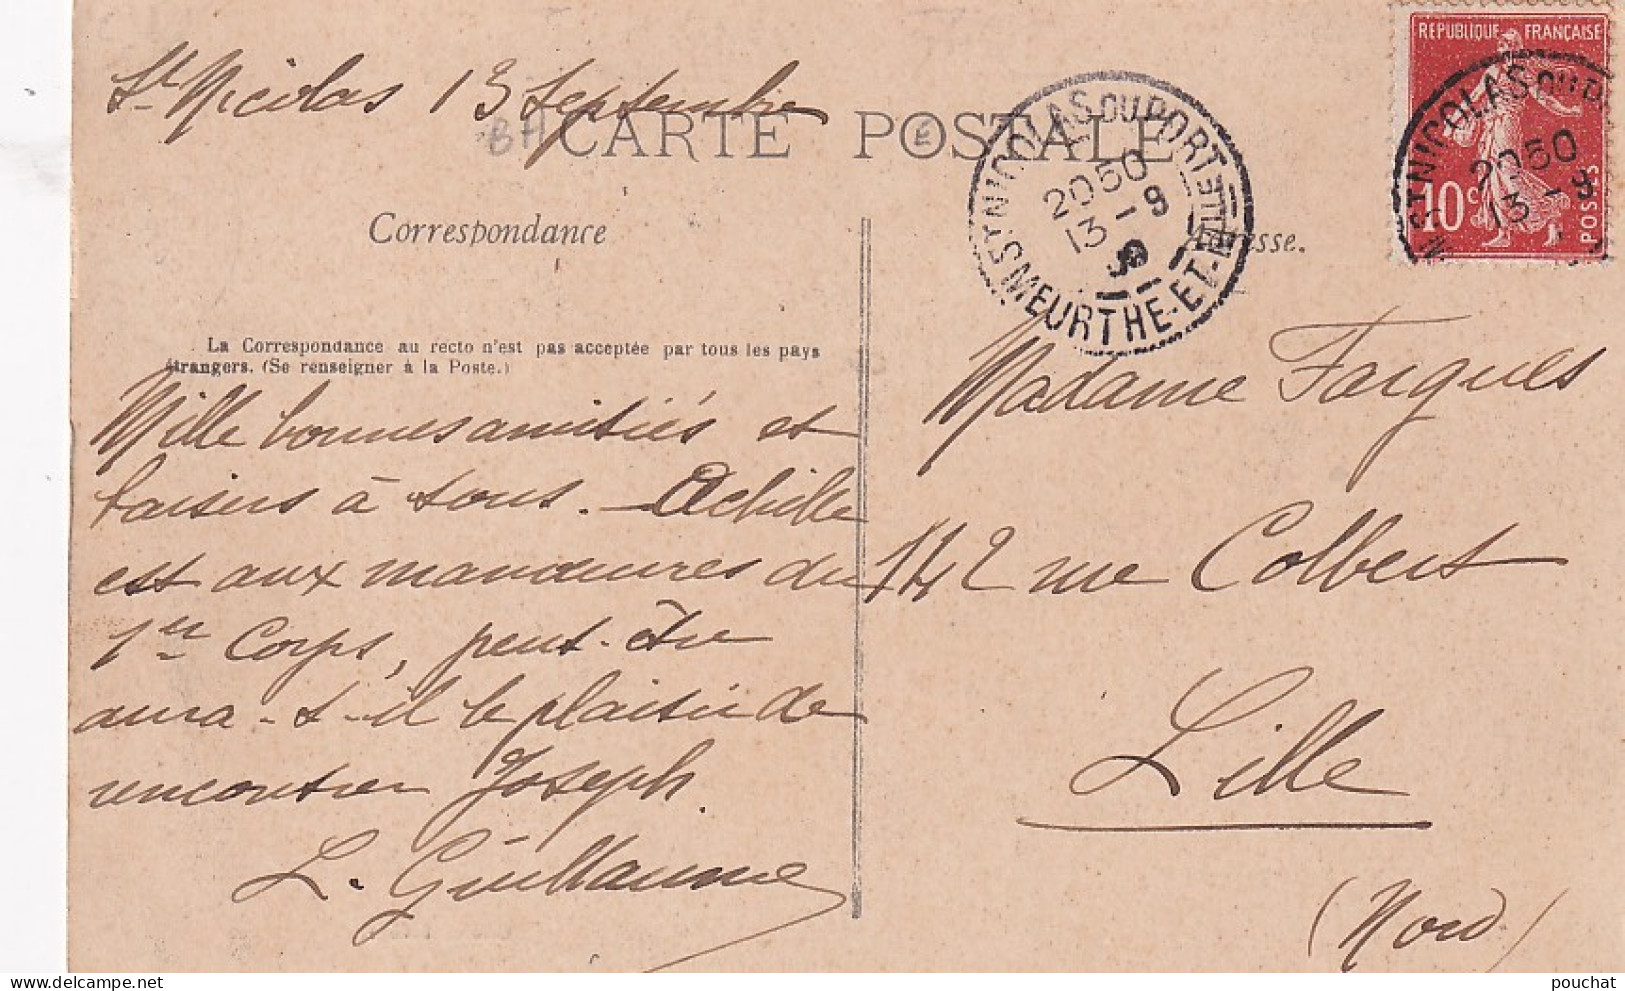 St Nicolas 13 Septembre
CARTE POSTALE
Correspondance
Adresse.
La Correspondance au recto n'est pas acceptée par tous les pays
étrangers. (Se renseigner à la Poste.)
Mille bonnes amitiés et
baisers à tous. — Achille
est aux manœuvres du
1er Corps, peut-être
aura-t-il le plaisir de
rencontrer Joseph.
L. Guillaume
REPUBLIQUE FRANÇAISE
10c
POSTES
ST NICOLAS DU P
20 50
13 - 9
ST NICOLAS DU PORT
20 50
13 - 9
MEURTHE-ET-
Madame Fargues
142 rue Colbert
Lille
(Nord)
pouchat